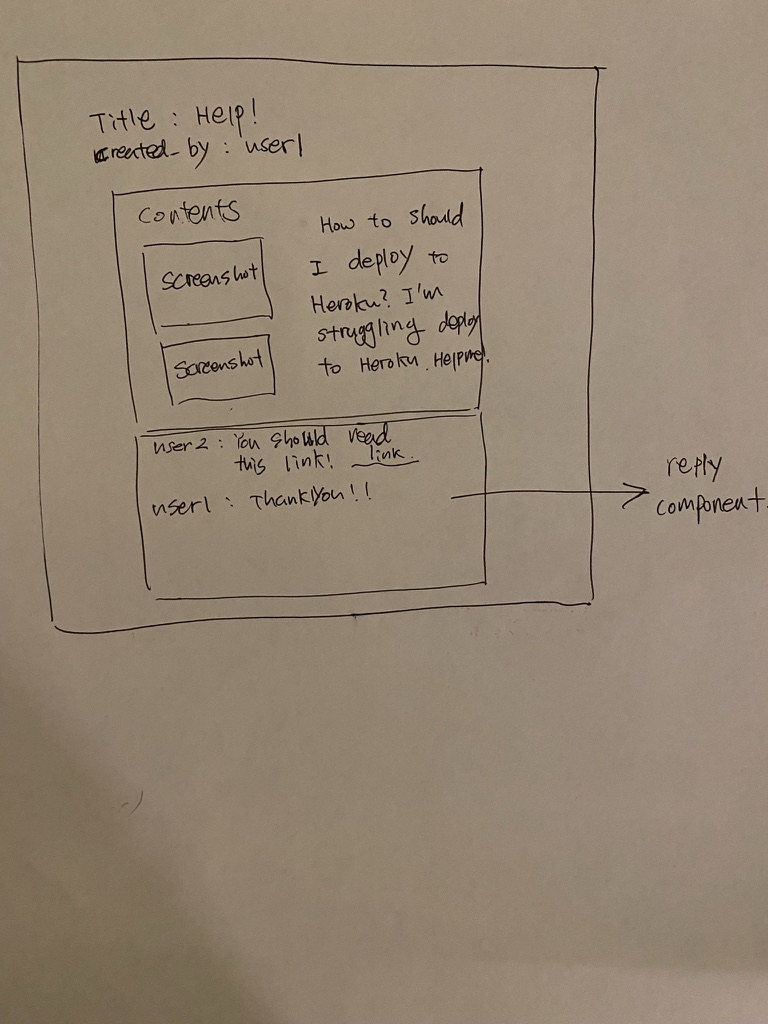 Title : Help!
created_by : user1
Contents
screenshot
screenshot
How to should
I deploy to
Heroku? I'm
struggling deploy
to Heroku. Helpme!.
user2 : You should read
this link! link.
user1 : ThankYou!!
reply
component.